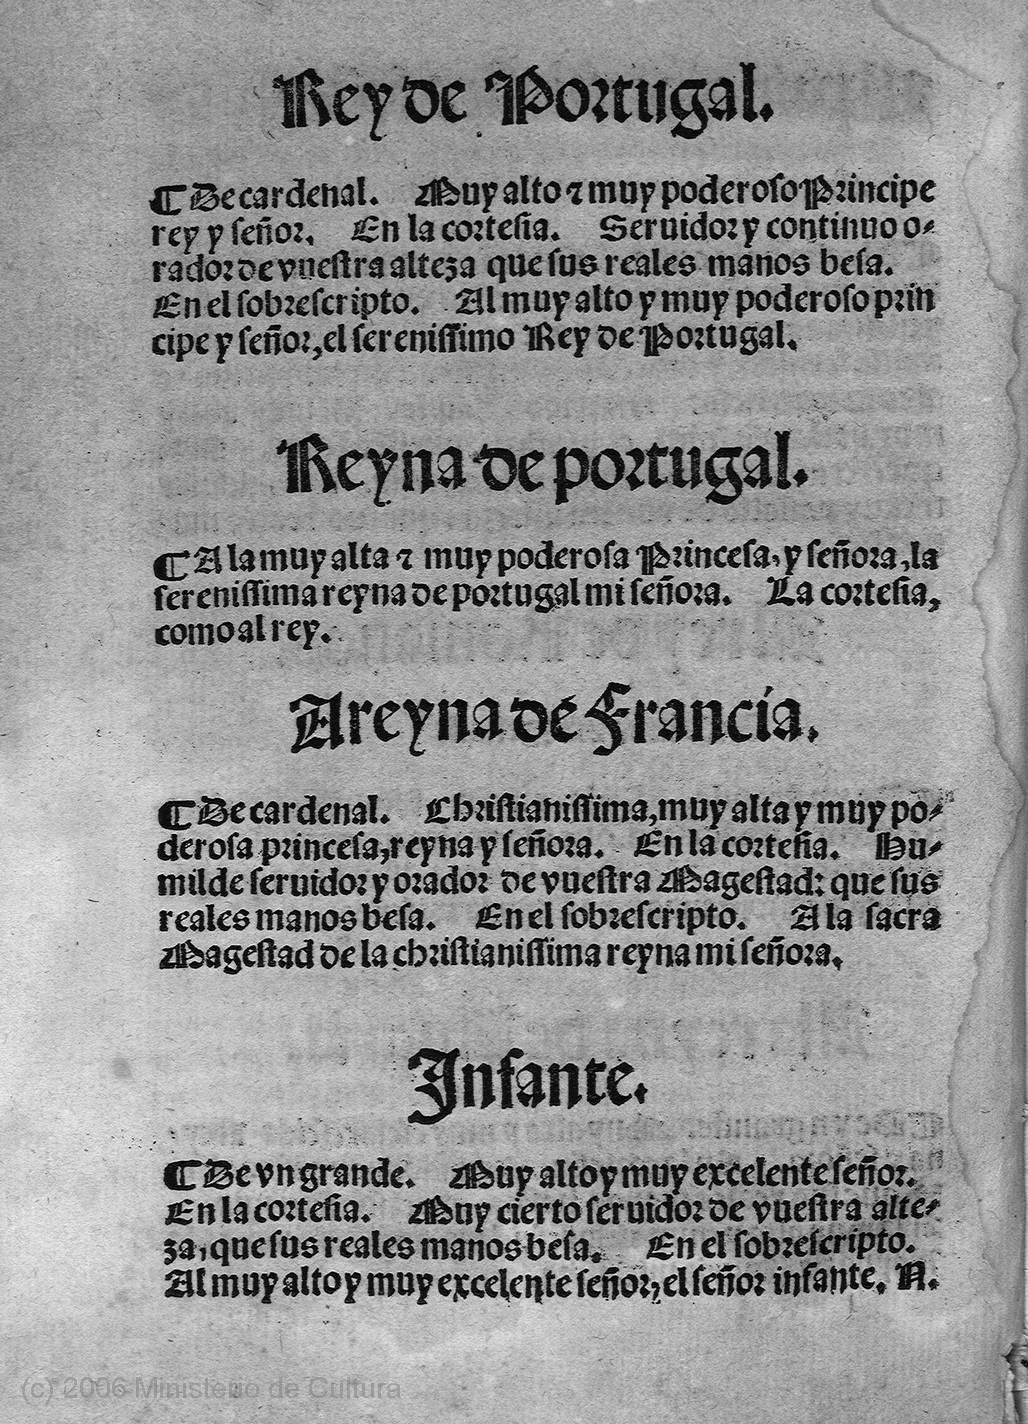 Rey de Portugal.
¶ De cardenal. Muy alto ⁊ muy poderoso Principe
rey y señor. En la cortesia. Seruidor y continuo o-
rador de vuestra alteza que sus reales manos besa.
En el sobrescripto. Al muy alto y muy poderoso prin
cipe y señor, el serenissimo Rey de Portugal.
Reyna de portugal.
¶ A la muy alta ⁊ muy poderosa Princesa, y señora, la
serenissima reyna de portugal mi señora. La cortesia,
como al rey.
A reyna de Francia.
¶ De cardenal. Christianissima, muy alta y muy po-
derosa princesa, reyna y señora. En la cortesia. Hu-
milde seruidor y orador de vuestra Magestad: que sus
reales manos besa. En el sobrescripto. A la sacra
Magestad de la christianissima reyna mi señora.
Infante.
¶ De vn grande. Muy alto y muy excelente señor.
En la cortesia. Muy cierto seruidor de vuestra alte-
za, que sus reales manos besa. En el sobrescripto.
Al muy alto y muy excelente señor, el señor infante. N.
(c) 2006 Ministerio de Cultura